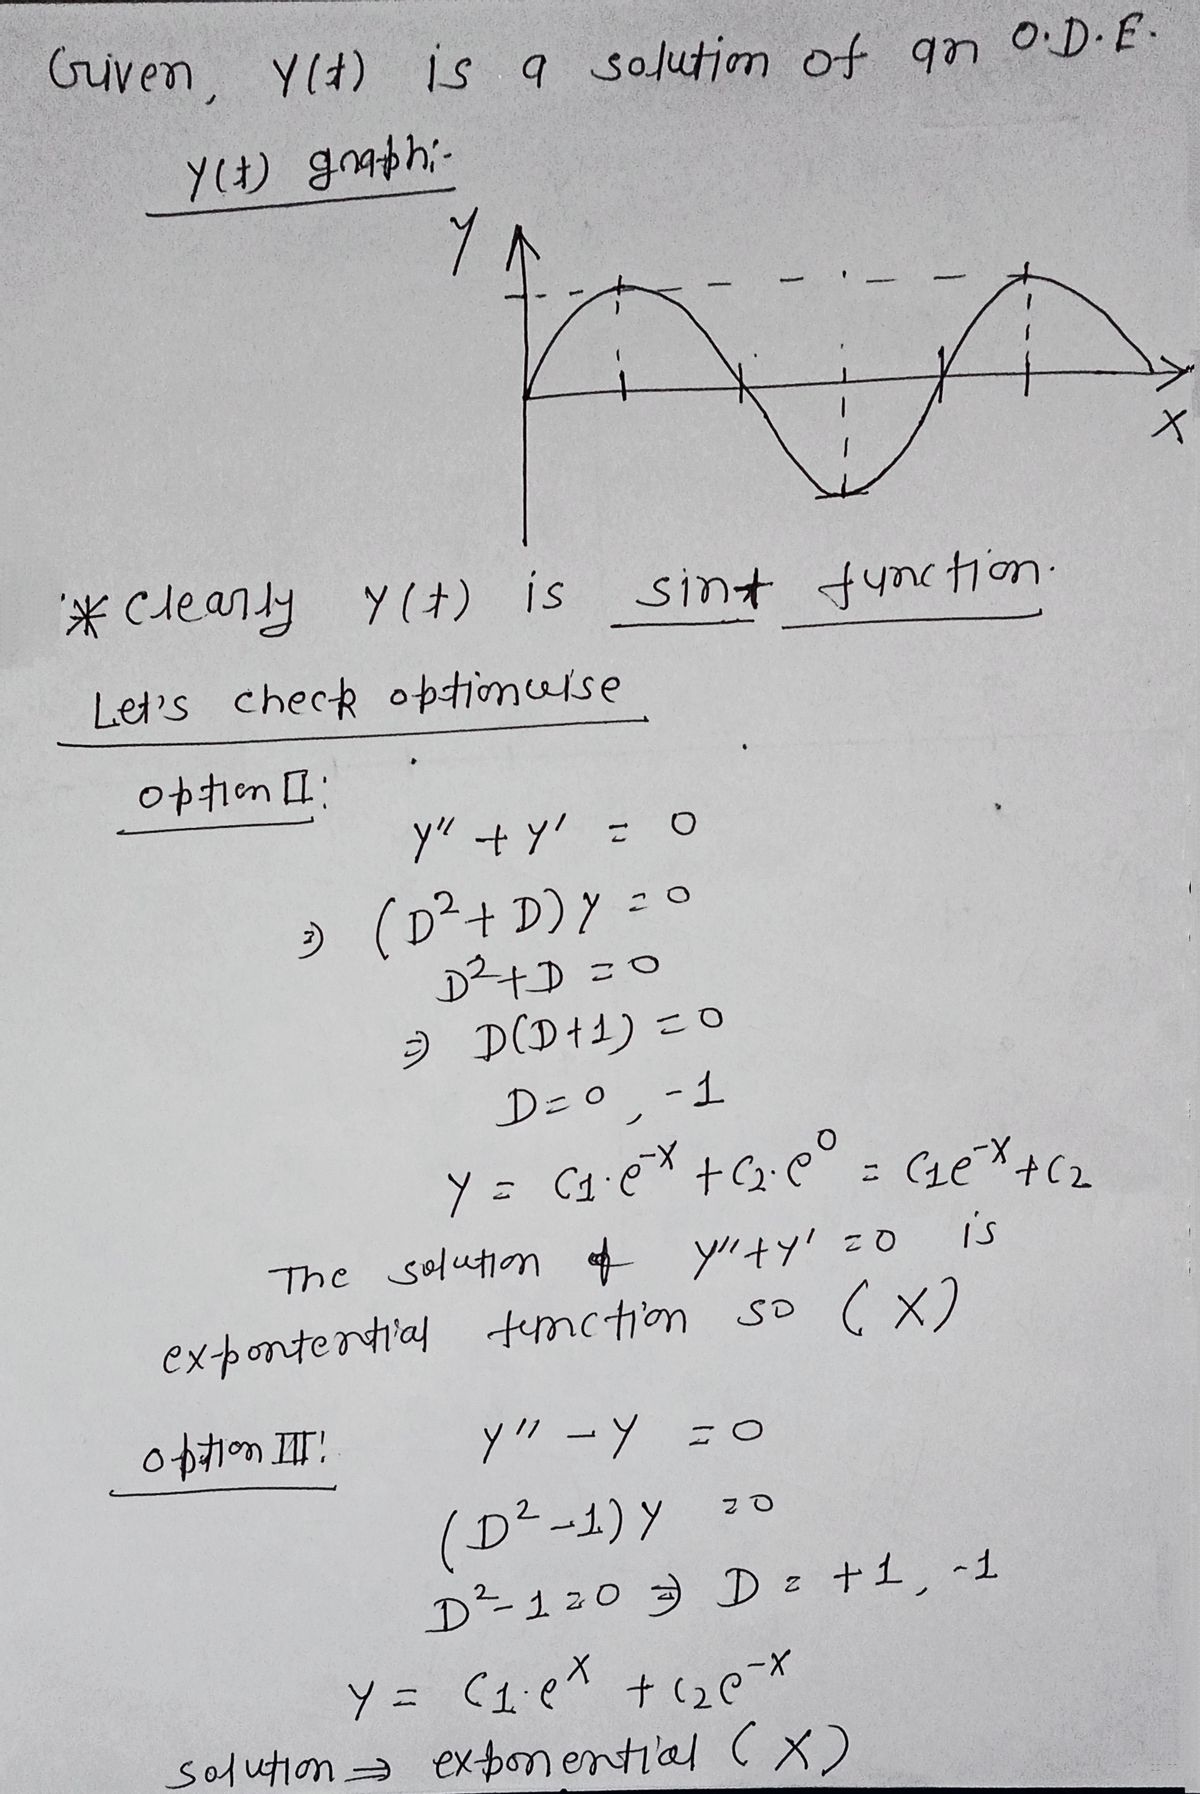 Given, y(t) is a solution of an O.D.E.
y(t) graph:-
y
x
* Clearly y(t) is sint function.
Let's check optionwise
option II:
y'' + y' = 0
⇒ (D² + D) y = 0
D² + D = 0
⇒ D(D+1) = 0
D = 0, -1
y = C1·e^-x + C2·e^0 = C1e^-x + C2
The solution of y''+y' = 0 is
expontential function so (X)
option III:
y'' - y = 0
(D² - 1) y = 0
D² - 1 = 0 ⇒ D = +1, -1
y = C1·e^x + C2e^-x
solution ⇒ exponential (X)